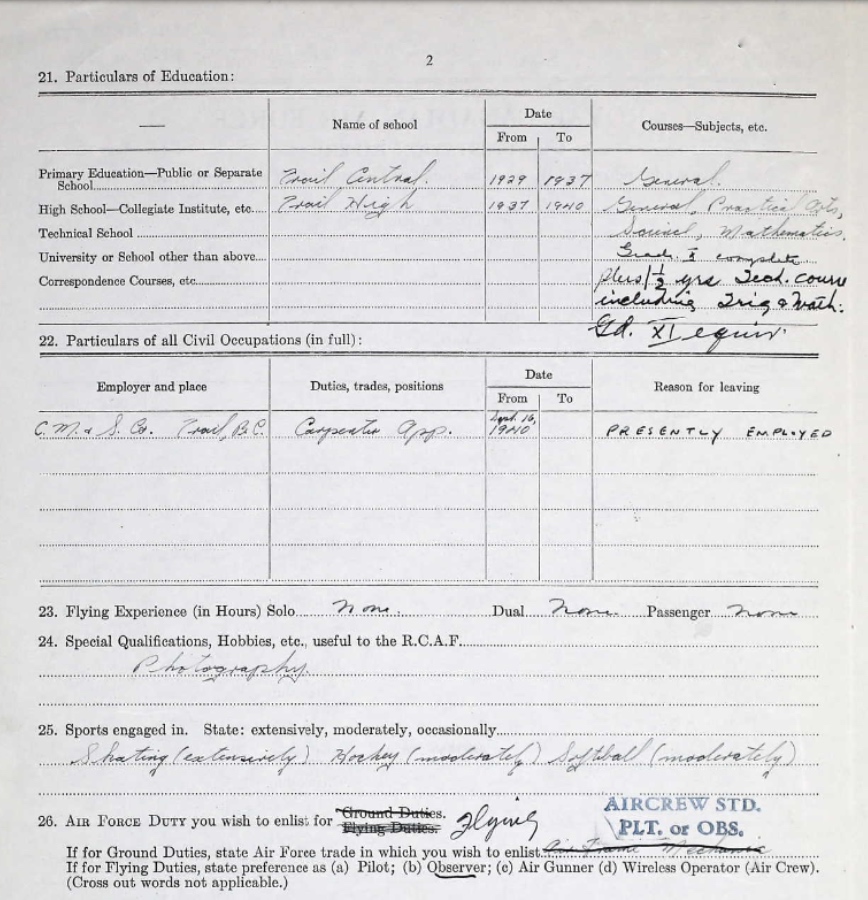 2
21. Particulars of Education:
— Name of school Date Courses—Subjects, etc.
From To
Primary Education—Public or Separate
School Trail Central. 1929 1937 General.
High School—Collegiate Institute, etc. Trail High 1937 1940 General, Practical Arts,
Technical School Science, Mathematics.
University or School other than above Grade X complete
Correspondence Courses, etc. plus 1½ yrs Tech. course
including Trig & Math:
Gd. XI equiv.
22. Particulars of all Civil Occupations (in full):
Employer and place Duties, trades, positions Date Reason for leaving
From To
C. M. & S. Co. Trail, B.C. Carpenter App. Sept. 16, 1940 PRESENTLY EMPLOYED
23. Flying Experience (in Hours) Solo None. Dual None. Passenger None
24. Special Qualifications, Hobbies, etc., useful to the R.C.A.F.
Photography.
25. Sports engaged in. State: extensively, moderately, occasionally
Skating (extensively) Hockey (moderately) Softball (moderately)
AIRCREW STD.
26. AIR FORCE DUTY you wish to enlist for Ground Duties. Flying Duties. Flying PLT. or OBS.
If for Ground Duties, state Air Force trade in which you wish to enlist Air Frame Mechanic
If for Flying Duties, state preference as (a) Pilot; (b) Observer; (c) Air Gunner (d) Wireless Operator (Air Crew).
(Cross out words not applicable.)